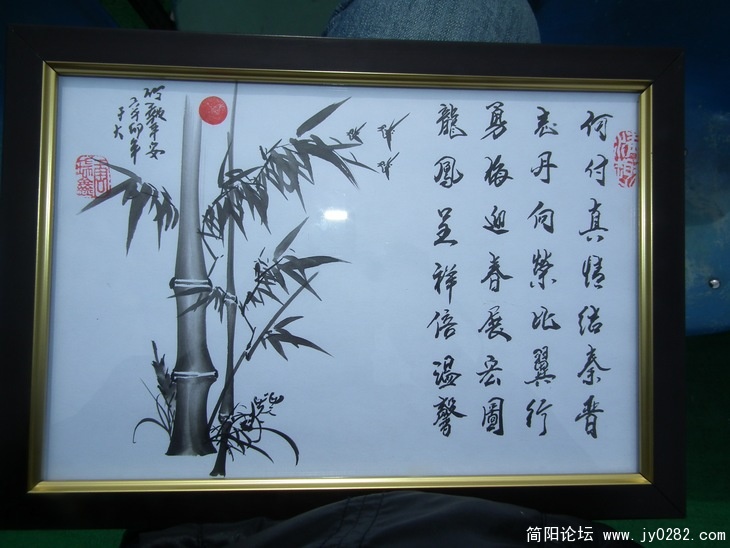 何付真情结秦晋
志丹向榮比翼行
勇梅迎春展宏圖
龍鳳呈祥倍温馨
竹報平安
辛卯年
简阳论坛 www.jy0282.com